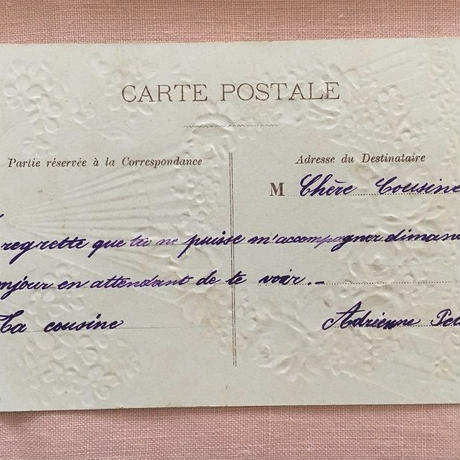 CARTE POSTALE
Partie réservée à la Correspondance
Adresse du Destinataire
M Chère Cousine
regrette que tu ne puisse m'accompagner dimanc
onjour en attendant de te voir._
Ta cousine
Adrienne Pe